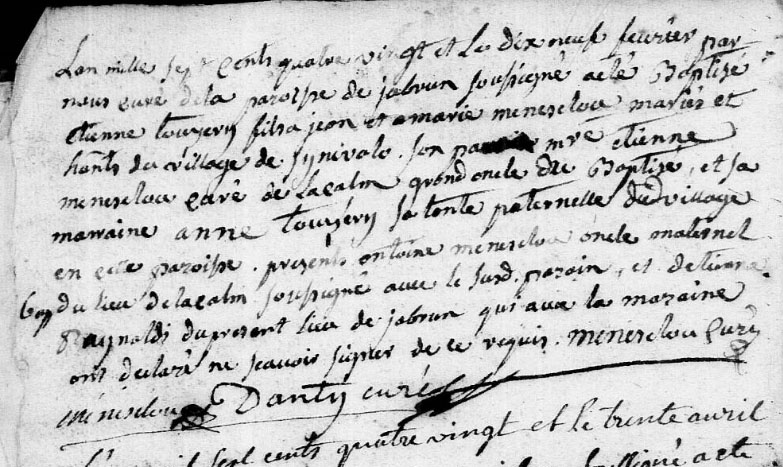 Lan mille sept cents quatre vingt et le dix neuf fevrier par
nous curé de la paroisse de jabrun soussigné a été Baptisé
etienne tourzery fils a jean et a marie meneclou mariés et
hants du village de . son mre etienne
meneclou curé de lacalm grand oncle du Baptisé, et sa
marraine anne tourzery sa tente paternelle du village
en cette paroisse. presents antoine meneclou oncle maternel
Bap du lieu de lacalm soussigné avec le susd. parain, et detienne
Raynaldi du present lieu de jabrun qui avec la maraine
ont declaré ne scavoir signer de ce requis. meneclou curé
meneclou Danty curé
sept cents quatre vingt et le trente avril
a été